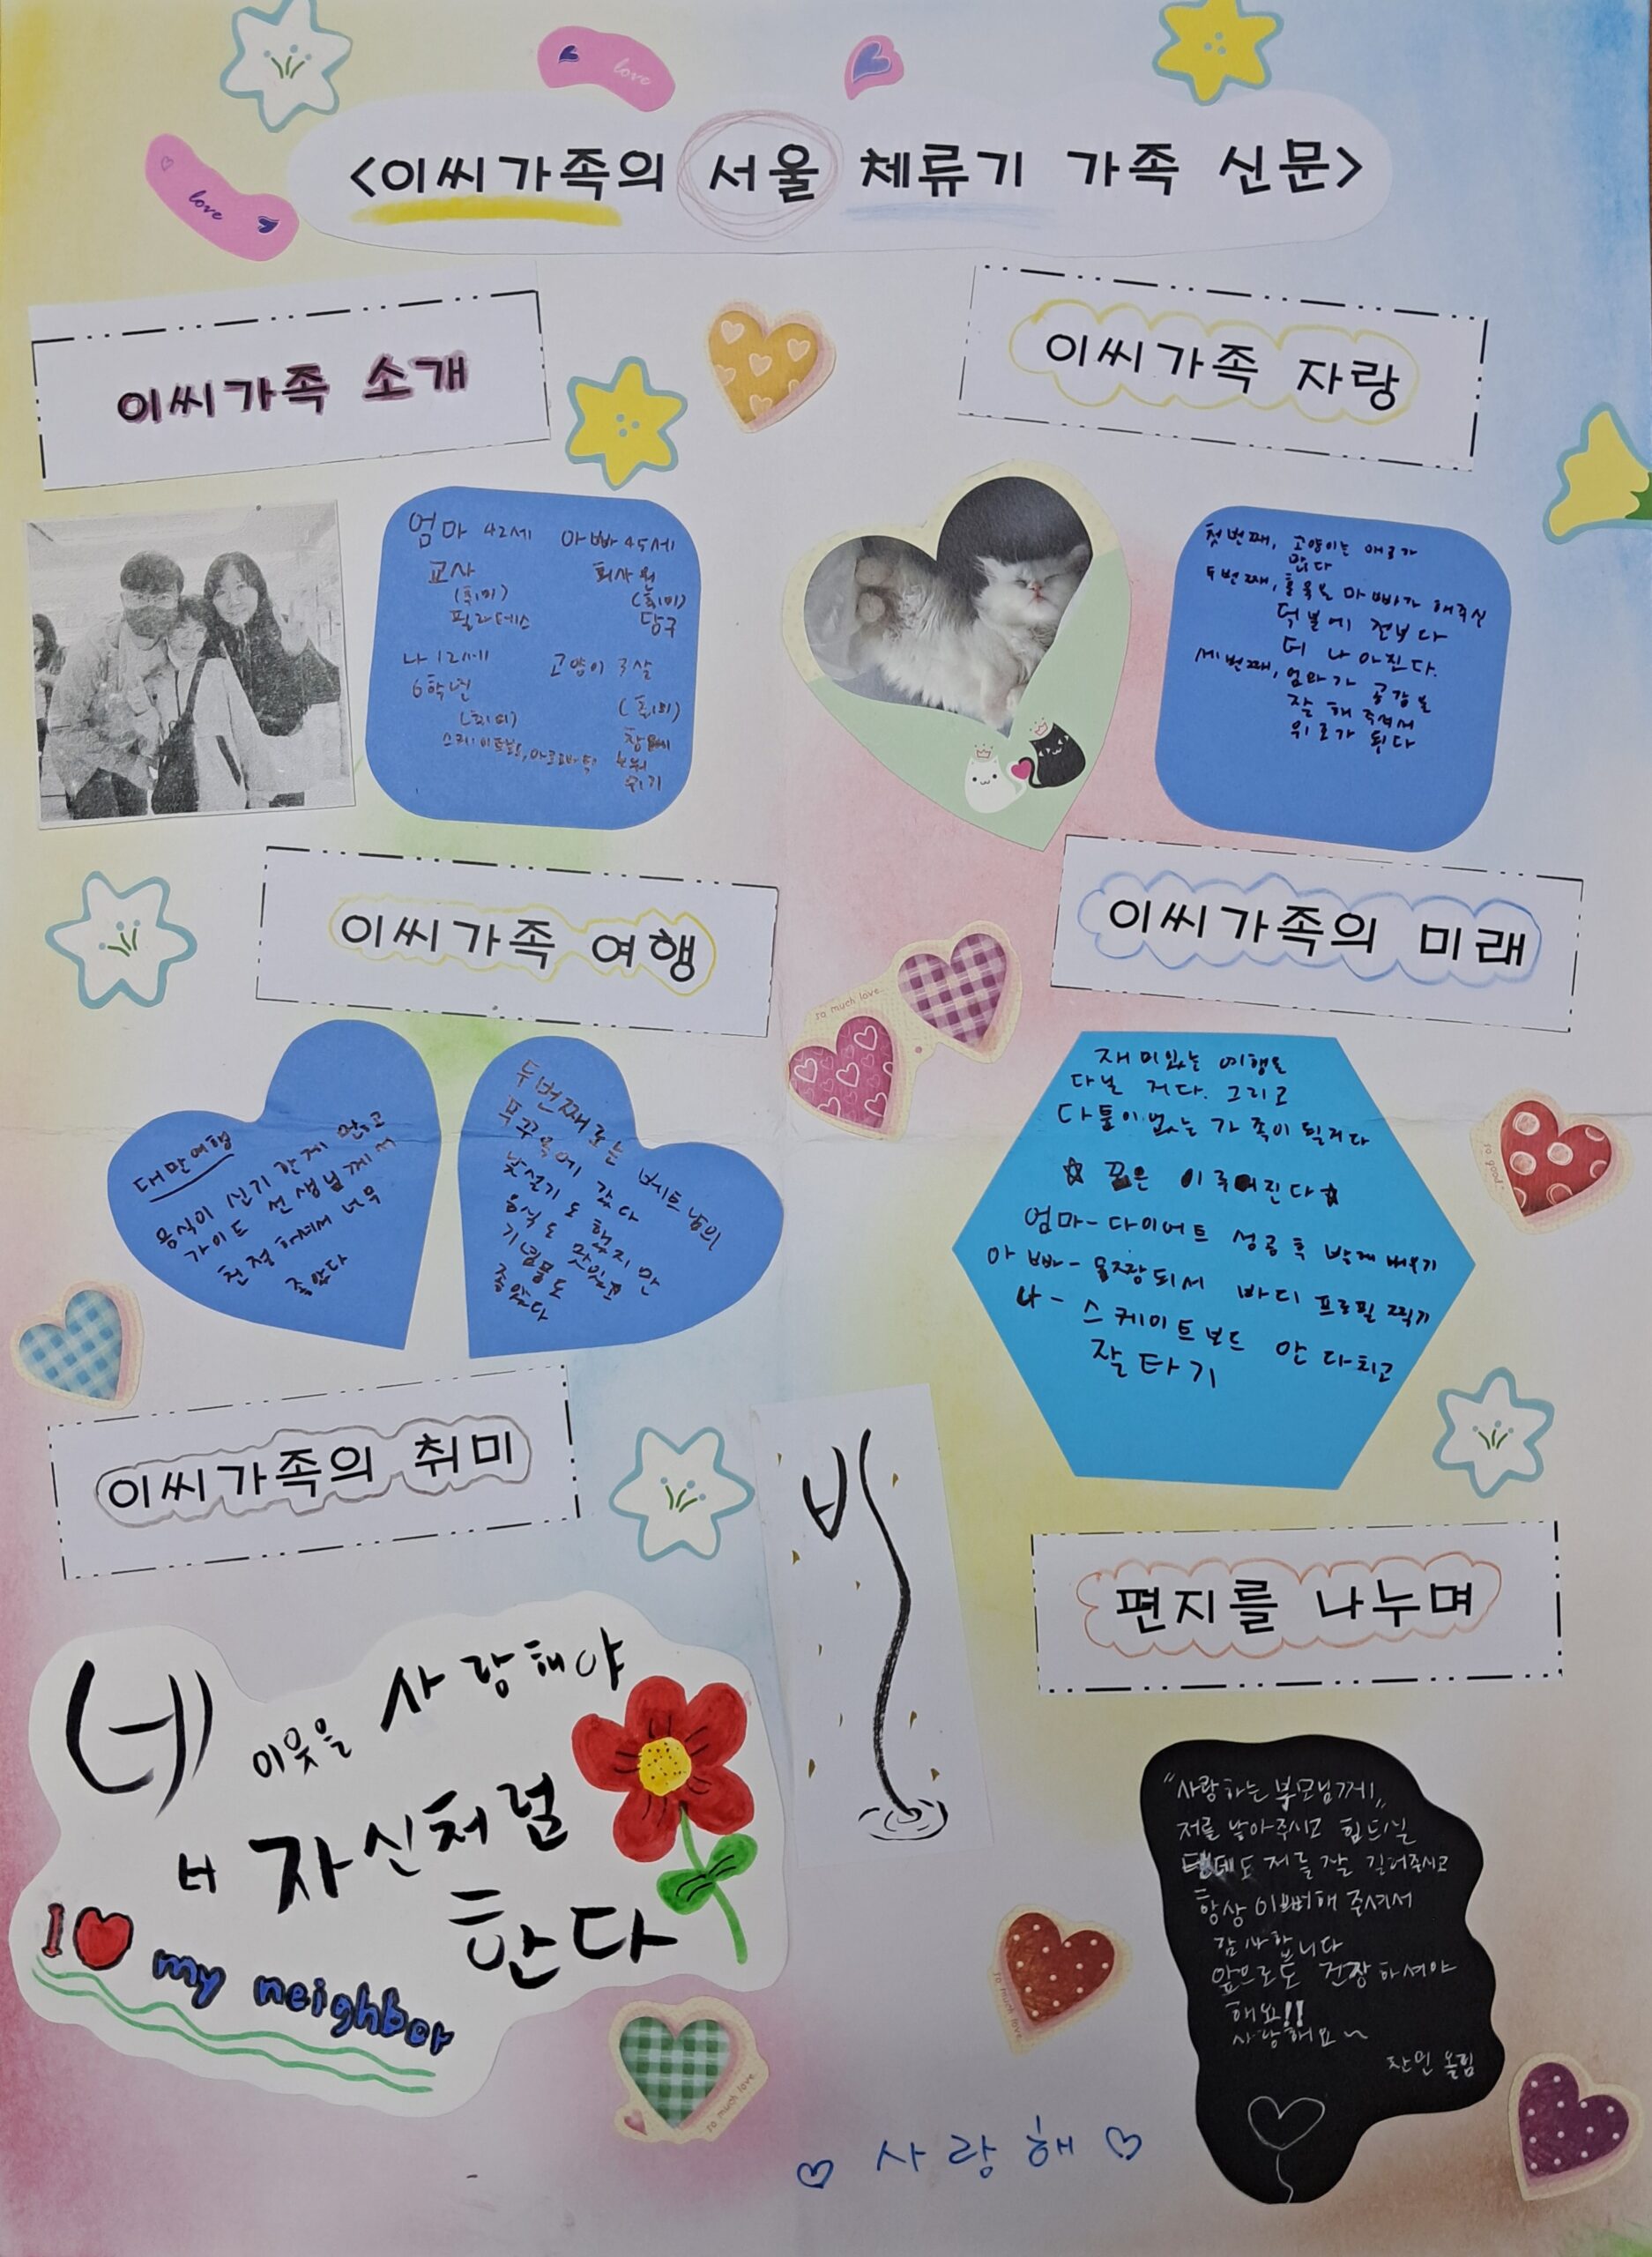 love
love
<이씨가족의 서울 체류기 가족 신문>
이씨가족 소개
엄마 42세
교사
(취미)
필라테스
아빠 45세
회사원
(취미)
당구
나 12세
6학년
(취미)
스케이트보드,
고양이 3살
(취미)
이씨가족 자랑
첫번째, 고양이는 애교가
많다
두번째, 아빠가 해주신
덕분에 전보다
더 나아진다.
세번째, 엄마가 공감을
잘 해주셔서
위로가 된다
이씨가족 여행
대만여행
음식이 신기한게 많고
가이드 선생님께서
친절해셔서 너무
좋았다
두번째로는 베트남의
푸꾸옥에 갔다
낯설기도 했지만
음식도 맛있고
기념품도
좋았다
so much love
이씨가족의 미래
재미있는 여행을
다닐 거다. 그리고
다툼이 없는 가족이 될거다
☆ 꿈은 이루어진다☆
엄마- 다이어트 성공
아빠- 몸짱되서 바디 프로필 찍기
나- 스케이트보드 안 다치고
잘 타기
so good
이씨가족의 취미
네 이웃을 사랑해야
너 자신처럼
한다
I ♥ my neighbor
비
편지를 나누며
"사랑하는 부모님께"
저를 낳아주시고 힘드실
텐데도 저를 잘 길러주시고
항상 이뻐해 주셔서
감사합니다
앞으로도 건강하셔야
해요!!
사랑해요~
올림
so much love
so much love
♡ 사랑해 ♡